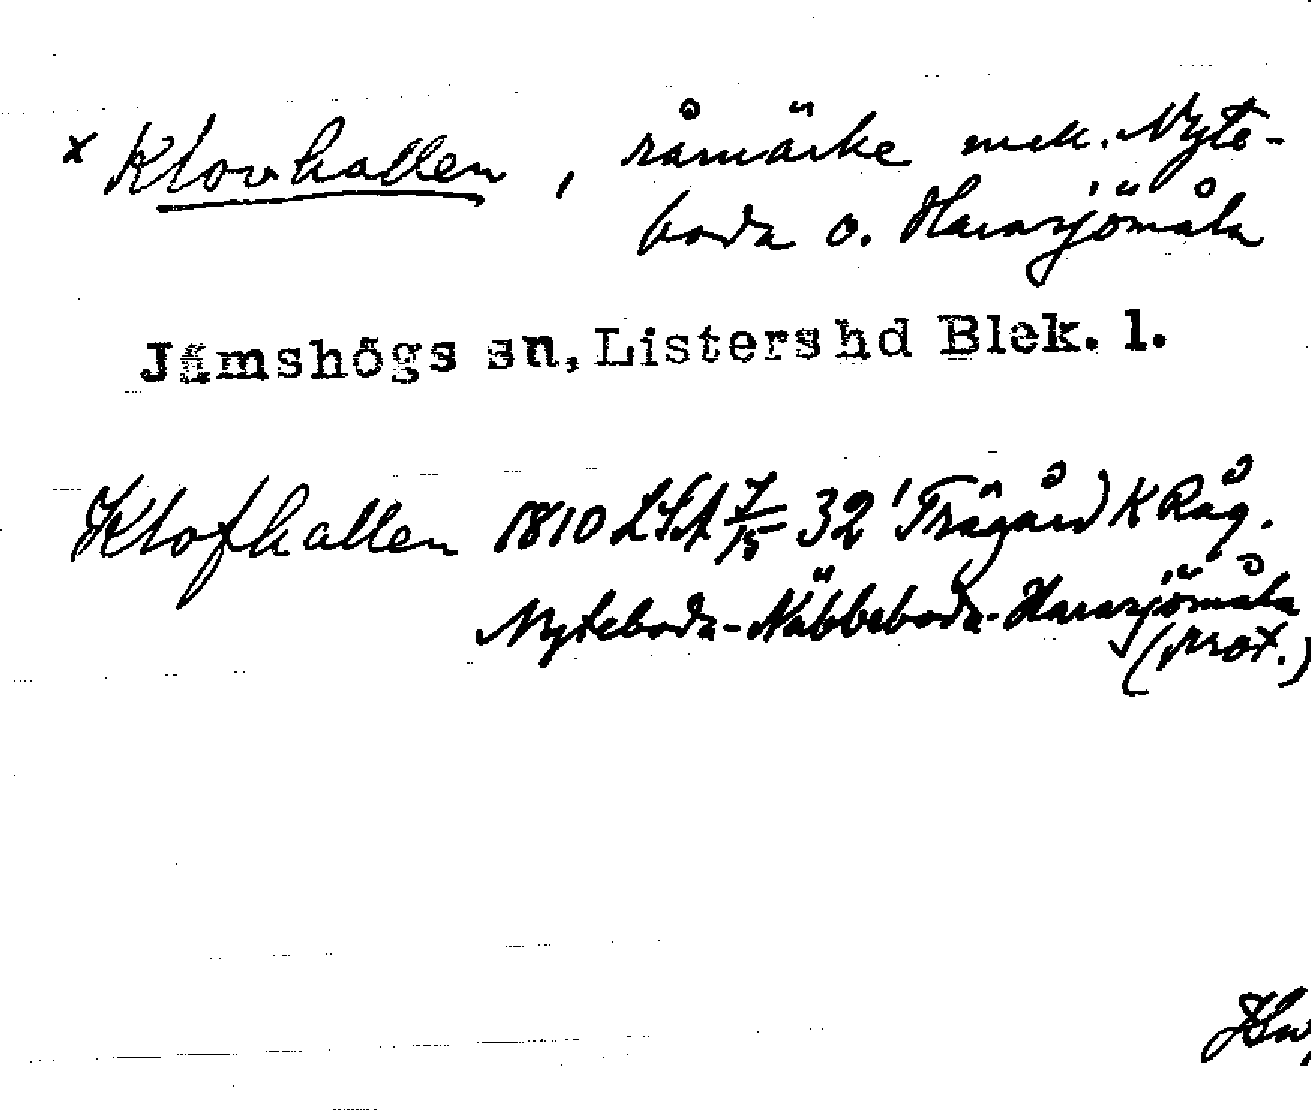 x Klovhallen, råmärke mell. Nyte-
boda o. Harasjömåla
Jämshögs sn, Listers hd Blek. l.
Klofhallen 1810 LSA 7/15 32 'Trägård) K Råg.
Nyteboda-Näbbeboda-Harasjömåla
(prot.)